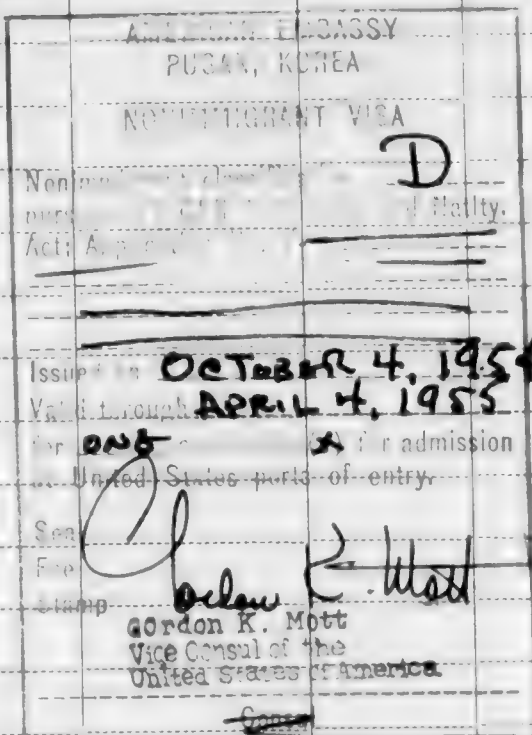 AMERICAN EMBASSY
PUSAN, KOREA
NONIMMIGRANT VISA
D
Natlty.
Act;
Issued in OCTOBER 4, 1954
Valid through APRIL 4, 1955
for ONE for admission
at United States ports of entry.
Sea
Fee
Stamp
Gordon K. Mott
Gordon K. Mott
Vice Consul of the
United States of America